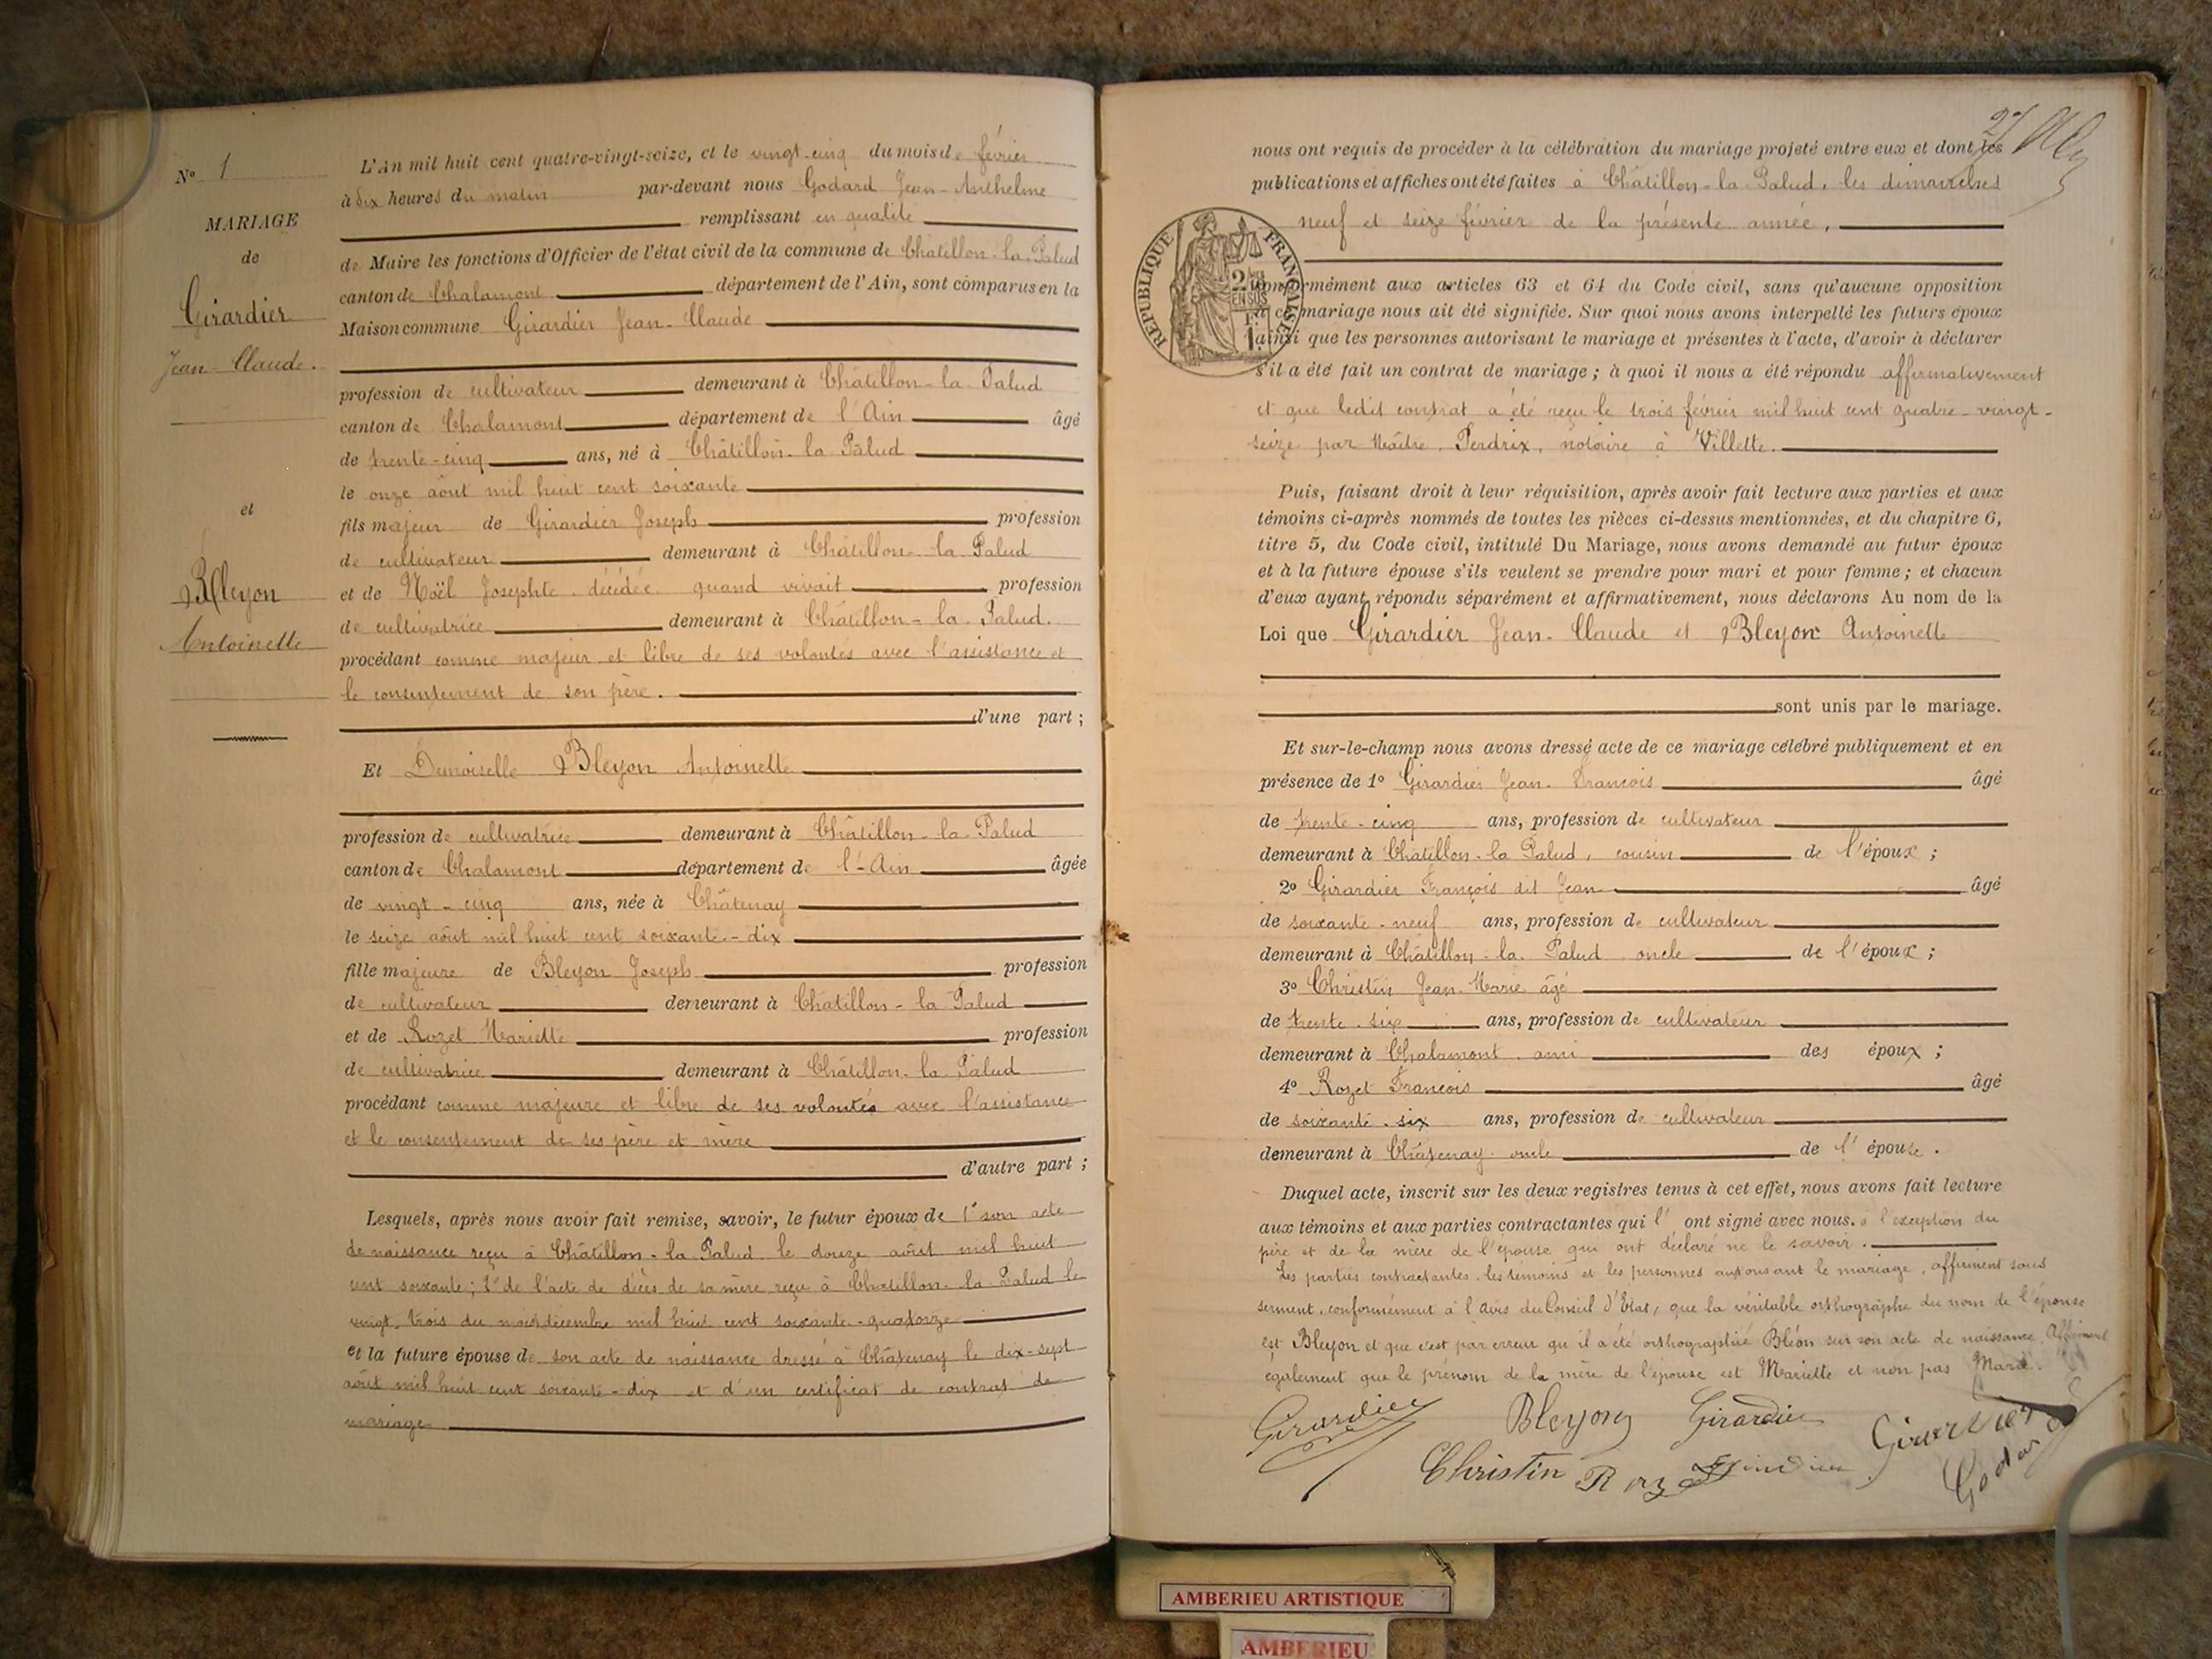 N° 1
MARIAGE
de
Girardier
Jean-Claude.
et
Bleyon
Antoinette
L'An mil huit cent quatre-vingt-seize, et le vingt-cinq du mois de février
à dix heures du matin par-devant nous Godard Jean-Anthelme
remplissant en qualité
de Maire les fonctions d'Officier de l'état civil de la commune de Châtillon-la-Palud
canton de Chalamont département de l'Ain, sont comparus en la
Maison commune Girardier Jean-Claude
profession de cultivateur demeurant à Châtillon-la-Palud
canton de Chalamont département de l'Ain âgé
de trente-cinq ans, né à Châtillon-la-Palud
le onze août mil huit cent soixante
fils majeur de Girardier Joseph profession
de cultivateur demeurant à Châtillon-la-Palud
et de Noël Josephte décédée quand vivait profession
de cultivatrice demeurant à Châtillon-la-Palud.
procédant comme majeur et libre de ses volontés avec l'assistance et
le consentement de son père.
d'une part ;
Et Demoiselle Bleyon Antoinette
profession de cultivatrice demeurant à Châtillon-la-Palud
canton de Chalamont département de l'Ain âgée
de vingt-cinq ans, née à Châtenay
le seize août mil huit cent soixante-dix
fille majeure de Bleyon Joseph profession
de cultivateur demeurant à Châtillon-la-Palud
et de Rozet Mariette profession
de cultivatrice demeurant à Châtillon-la-Palud
procédant comme majeure et libre de ses volontés avec l'assistance
et le consentement de ses père et mère
d'autre part ;
Lesquels, après nous avoir fait remise, savoir, le futur époux de 1° son acte
de naissance reçu à Châtillon-la-Palud le douze août mil huit
cent soixante ; 2° de l'acte de décès de sa mère reçu à Châtillon-la-Palud le
vingt-trois du mois décembre mil huit cent soixante-quatorze
et la future épouse de son acte de naissance dressé à Châtenay le dix-sept
août mil huit cent soixante-dix et d'un certificat de contrat de
mariage
27
nous ont requis de procéder à la célébration du mariage projeté entre eux et dont les
publications et affiches ont été faites à Châtillon-la-Palud, les dimanches
neuf et seize février de la présente année,
RÉPUBLIQUE FRANÇAISE
2/10es
EN SUS
conformément aux articles 63 et 64 du Code civil, sans qu'aucune opposition
à ce mariage nous ait été signifiée. Sur quoi nous avons interpellé les futurs époux
ainsi que les personnes autorisant le mariage et présentes à l'acte, d'avoir à déclarer
s'il a été fait un contrat de mariage ; à quoi il nous a été répondu affirmativement
et que ledit contrat a été reçu le trois février mil huit cent quatre-vingt-
seize par Maître Perdrix, notaire à Villette.
Puis, faisant droit à leur réquisition, après avoir fait lecture aux parties et aux
témoins ci-après nommés de toutes les pièces ci-dessus mentionnées, et du chapitre 6,
titre 5, du Code civil, intitulé Du Mariage, nous avons demandé au futur époux
et à la future épouse s'ils veulent se prendre pour mari et pour femme ; et chacun
d'eux ayant répondu séparément et affirmativement, nous déclarons Au nom de la
Loi que Girardier Jean-Claude et Bleyon Antoinette
sont unis par le mariage.
Et sur-le-champ nous avons dressé acte de ce mariage célébré publiquement et en
présence de 1° Girardier Jean-François âgé
de trente-cinq ans, profession de cultivateur
demeurant à Châtillon-la-Palud, cousin de l'époux ;
2° Girardier François dit Jean âgé
de soixante-neuf ans, profession de cultivateur
demeurant à Châtillon-la-Palud oncle de l'époux ;
3° Christin Jean-Marie âgé
de trente-six ans, profession de cultivateur
demeurant à Chalamont ami des époux ;
4° Rozet François âgé
de soixante-six ans, profession de cultivateur
demeurant à Châtenay oncle de l'épouse.
Duquel acte, inscrit sur les deux registres tenus à cet effet, nous avons fait lecture
aux témoins et aux parties contractantes qui l' ont signé avec nous. à l'exception du
père et de la mère de l'épouse qui ont déclaré ne le savoir.
Les parties contractantes, les témoins et les personnes autorisant le mariage, affirment sous
serment, conformément à l'avis du Conseil d'Etat, que la véritable orthographe du nom de l'épouse
est Bleyon et que c'est par erreur qu'il a été orthographié Bléon sur son acte de naissance Affirment
également que le prénom de la mère de l'épouse est Mariette et non pas Marie.
Girardier Bleyon Girardier Girardier
Christin Rozet Girardier Godard
AMBERIEU ARTISTIQUE
AMBERIEU